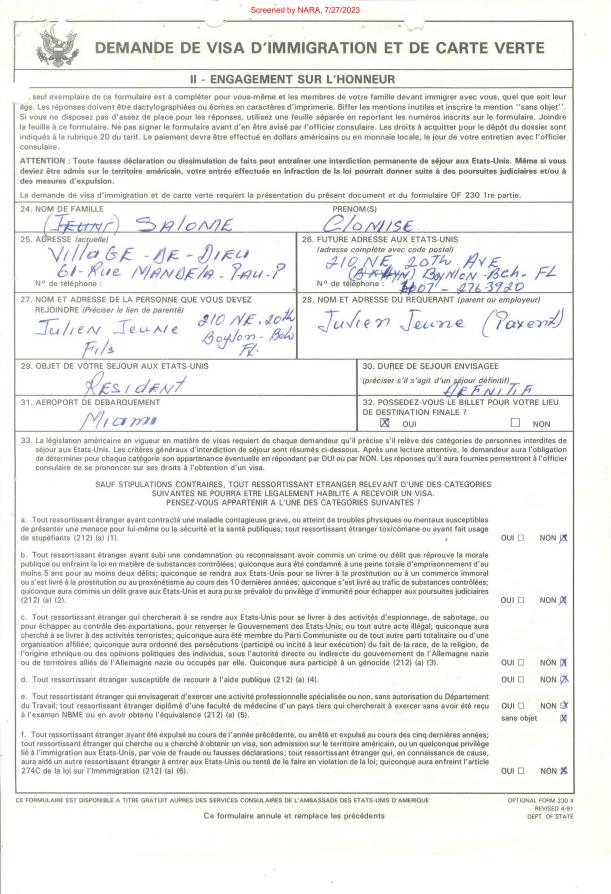 Screened by NARA, 7/27/2023
DEMANDE DE VISA D'IMMIGRATION ET DE CARTE VERTE
II - ENGAGEMENT SUR L'HONNEUR
, seul exemplaire de ce formulaire est à compléter pour vous-même et les membres de votre famille devant immigrer avec vous, quel que soit leur
âge. Les réponses doivent être dactylographiées ou écrites en caractères d'imprimerie. Biffer les mentions inutiles et inscrire la mention "sans objet".
Si vous ne disposez pas d'assez de place pour les réponses, utilisez une feuille séparée en reportant les numéros inscrits sur le formulaire. Joindre
la feuille à ce formulaire. Ne pas signer le formulaire avant d'en être avisé par l'officier consulaire. Les droits à acquitter pour le dépôt du dossier sont
indiqués à la rubrique 20 du tarif. Le paiement devra être effectué en dollars américains ou en monnaie locale, le jour de votre entretien avec l'officier
consulaire.
ATTENTION : Toute fausse déclaration ou dissimulation de faits peut entraîner une interdiction permanente de séjour aux Etats-Unis. Même si vous
deviez être admis sur le territoire américain, votre entrée effectuée en infraction de la loi pourrait donner suite à des poursuites judiciaires et/ou à
des mesures d'expulsion.
La demande de visa d'immigration et de carte verte requiert la présentation du présent document et du formulaire OF 230 1re partie.
24. NOM DE FAMILLE PRENOM(S)
(JEUNE) SALOME CLOMISE
25. ADRESSE (actuelle)
VILLAGE-DE-DIEU
61-Rue MANDELA-PAU-P
N° de téléphone :
26. FUTURE ADRESSE AUX ETATS-UNIS
(adresse complète avec code postal)
210 NE 20TH AVE
Boynton-Bch-FL
N° de téléphone : 407-2763920
27. NOM ET ADRESSE DE LA PERSONNE QUE VOUS DEVEZ
REJOINDRE (Préciser le lien de parenté)
Julien Jeune 210 NE. 20th
Fils Boynton-Bch
FL.
28. NOM ET ADRESSE DU REQUERANT (parent ou employeur)
Julien Jeune (Parent)
29. OBJET DE VOTRE SEJOUR AUX ETATS-UNIS
RESIDENT
30. DUREE DE SEJOUR ENVISAGEE
(préciser s'il s'agit d'un séjour définitif)
DEFINITIF
31. AEROPORT DE DEBARQUEMENT
Miami
32. POSSEDEZ-VOUS LE BILLET POUR VOTRE LIEU
DE DESTINATION FINALE ?
OUI NON
33. La législation américaine en vigueur en matière de visas requiert de chaque demandeur qu'il précise s'il relève des catégories de personnes interdites de
séjour aux Etats-Unis. Les critères généraux d'interdiction de séjour sont résumés ci-dessous. Après une lecture attentive, le demandeur aura l'obligation
de déterminer pour chaque catégorie son appartenance éventuelle en répondant par OUI ou par NON. Les réponses qu'il aura fournies permettront à l'officier
consulaire de se prononcer sur ses droits à l'obtention d'un visa.
SAUF STIPULATIONS CONTRAIRES, TOUT RESSORTISSANT ETRANGER RELEVANT D'UNE DES CATEGORIES
SUIVANTES NE POURRA ETRE LEGALEMENT HABILITE A RECEVOIR UN VISA.
PENSEZ-VOUS APPARTENIR A L'UNE DES CATEGORIES SUIVANTES ?
a. Tout ressortissant étranger ayant contracté une maladie contagieuse grave, ou atteint de troubles physiques ou mentaux susceptibles
de présenter une menace pour lui-même ou la sécurité et la santé publiques; tout ressortissant étranger toxicomane ou ayant fait usage
de stupéfiants (212) (a) (1). OUI NON
b. Tout ressortissant étranger ayant subi une condamnation ou reconnaissant avoir commis un crime ou délit que réprouve la morale
publique ou enfreint la loi en matière de substances contrôlées; quiconque aura été condamné à une peine totale d'emprisonnement d'au
moins 5 ans pour au moins deux délits; quiconque se rendra aux Etats-Unis pour se livrer à la prostitution ou à un commerce immoral
ou s'est livré à la prostitution ou au proxénétisme au cours des 10 dernières années; quiconque s'est livré au trafic de substances contrôlées;
quiconque aura commis un délit grave aux Etats-Unis et aura pu se prévaloir du privilège d'immunité pour échapper aux poursuites judiciaires
(212) (a) (2). OUI NON
c. Tout ressortissant étranger qui chercherait à se rendre aux Etats-Unis pour se livrer à des activités d'espionnage, de sabotage, ou
pour échapper au contrôle des exportations, pour renverser le Gouvernement des Etats-Unis, ou tout autre acte illégal; quiconque aura
cherché à se livrer à des activités terroristes; quiconque aura été membre du Parti Communiste ou de tout autre parti totalitaire ou d'une
organisation affiliée; quiconque aura ordonné des persécutions (participé ou incité à leur exécution) du fait de la race, de la religion, de
l'origine ethnique ou des opinions politiques des individus, sous l'autorité directe ou indirecte du gouvernement de l'Allemagne nazie
ou de territoires alliés de l'Allemagne nazie ou occupés par elle. Quiconque aura participé à un génocide (212) (a) (3). OUI NON
d. Tout ressortissant étranger susceptible de recourir à l'aide publique (212) (a) (4). OUI NON
e. Tout ressortissant étranger qui envisagerait d'exercer une activité professionnelle spécialisée ou non, sans autorisation du Département
du Travail; tout ressortissant étranger diplômé d'une faculté de médecine d'un pays tiers qui chercherait à exercer sans avoir été reçu
à l'examen NBME ou en avoir obtenu l'équivalence (212) (a) (5). OUI NON
sans objet
f. Tout ressortissant étranger ayant été expulsé au cours de l'année précédente, ou arrêté et expulsé au cours des cinq dernières années;
tout ressortissant étranger qui cherche ou a cherché à obtenir un visa, son admission sur le territoire américain, ou un quelconque privilège
lié à l'immigration aux Etats-Unis, par voie de fraude ou fausses déclarations; tout ressortissant étranger qui, en connaissance de cause,
aura aidé un autre ressortissant étranger à entrer aux Etats-Unis ou tenté de le faire en violation de la loi; quiconque aura enfreint l'article
274C de la loi sur l'Immigration (212) (a) (6). OUI NON
CE FORMULAIRE EST DISPONIBLE A TITRE GRATUIT AUPRES DES SERVICES CONSULAIRES DE L'AMBASSADE DES ETATS-UNIS D'AMERIQUE
OPTIONAL FORM 230 II
REVISED 4-91
DEPT. OF STATE
Ce formulaire annule et remplace les précédents